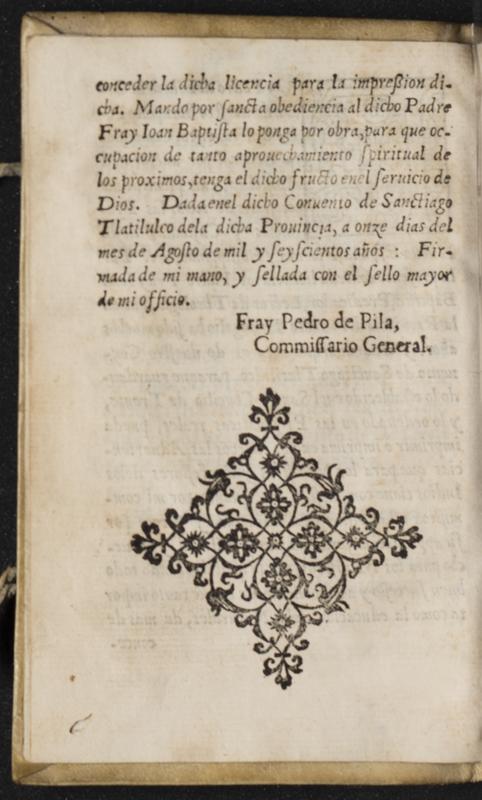 conceder la dicha licencia para la impreßion di-
cha. Mando por sancta obediencia al dicho Padre
Fray Ioan Baptista lo ponga por obra, para que oc-
cupacion de tanto aprouechamiento spiritual de
los proximos, tenga el dicho fructo enel seruicio de
Dios. Dada enel dicho Conuento de Sanctiago
Tlatilulco dela dicha Prouincia, a onze dias del
mes de Agosto de mil y seyscientos años : Fir-
mada de mi mano, y sellada con el sello mayor
de mi officio.
Fray Pedro de Pila,
Commissario General.